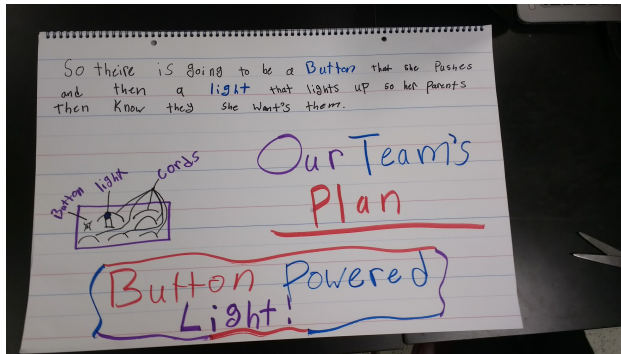 So theire is going to be a Button that she Pushes
and then a light that lights up so her parents
Then Know they she Want's them.
Our Team's
Plan
Button light cords
Button Powered
Light!